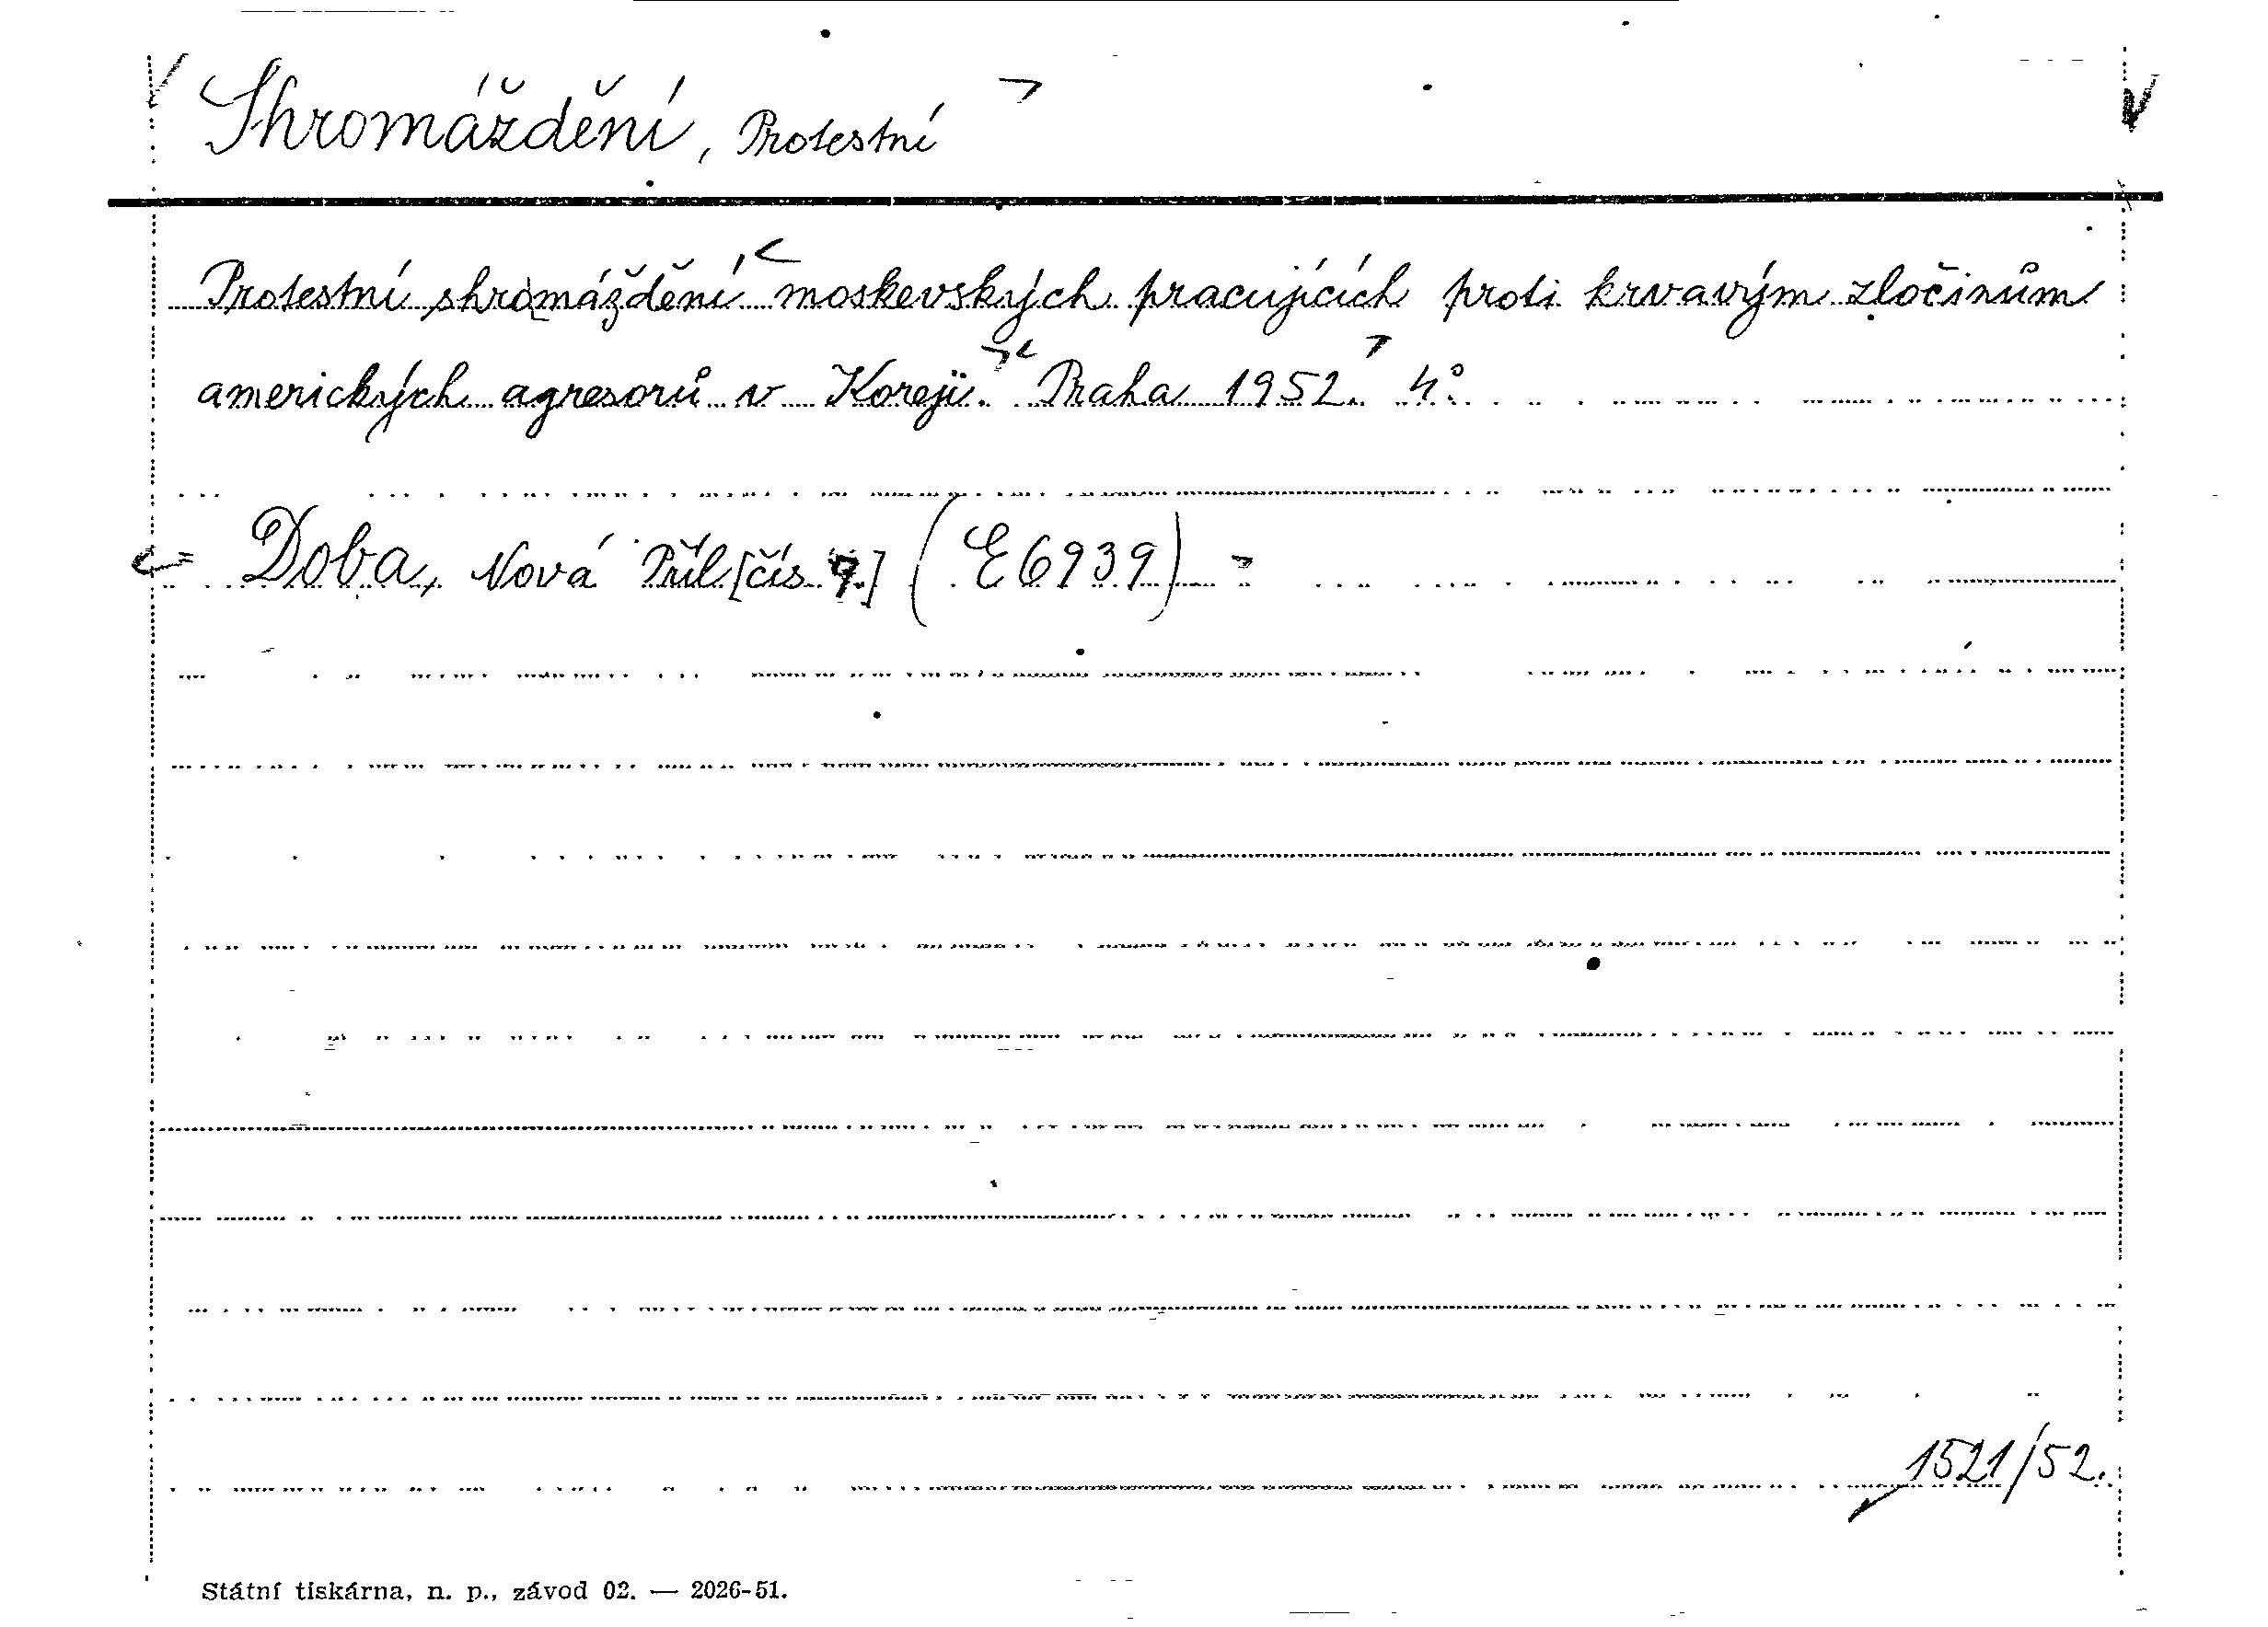 Shromáždění, Protestní
Protestní shromáždění moskevských pracujících proti krvavým zločinům
amerických agresorů v Koreji. Praha 1952. 4°.
Doba, Nová Příl[čís 9.] (E6939)
1521/52.
Státní tiskárna, n. p., závod 02. — 2026-51.